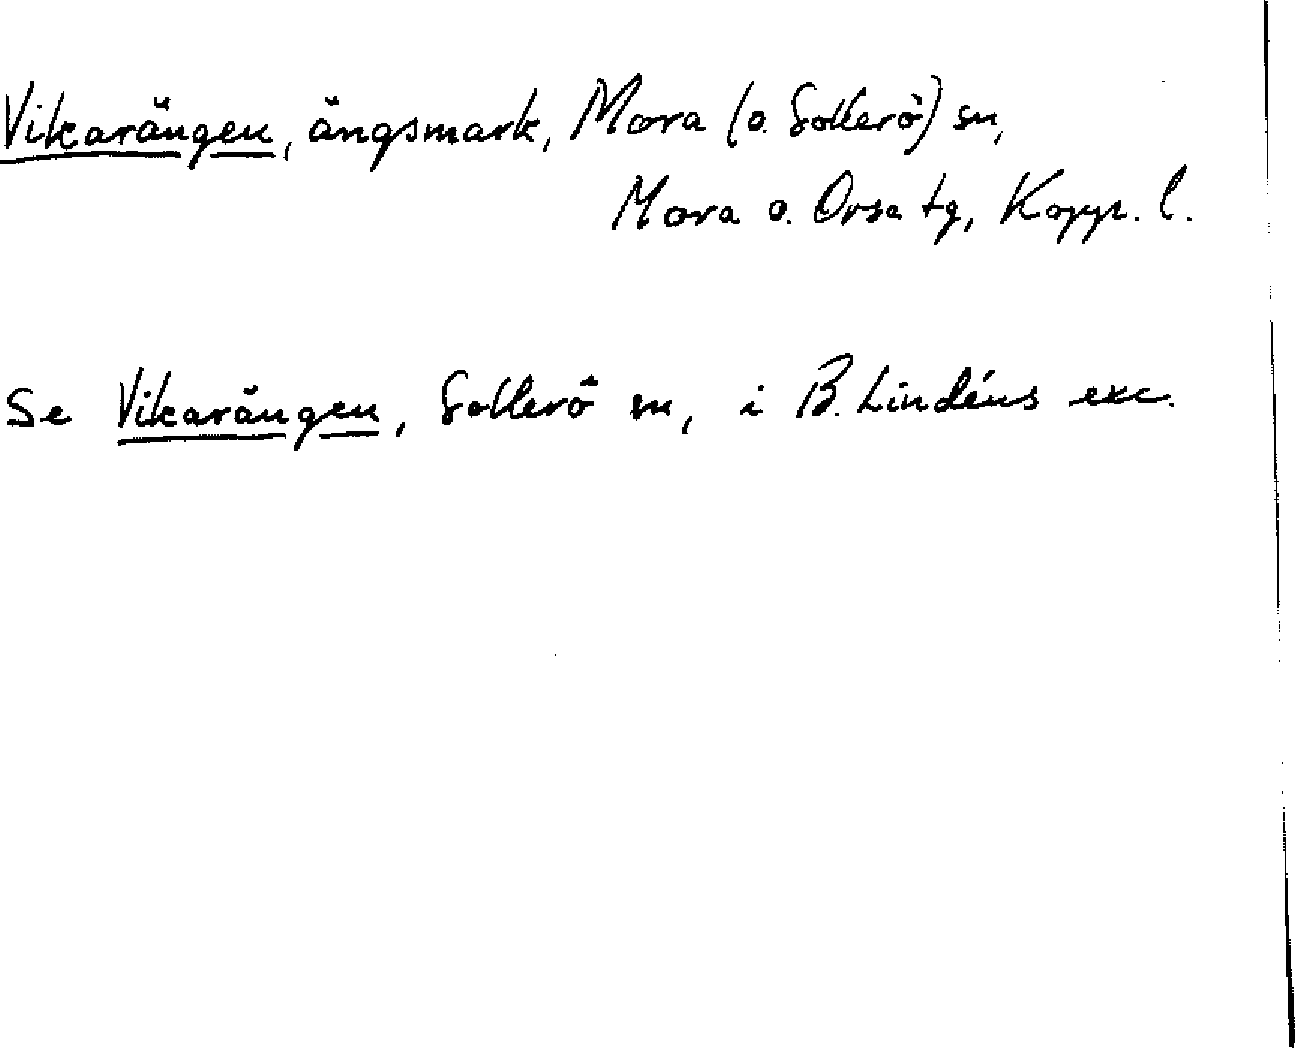 Vikarängen, ängsmark, Mora (o. Sollerö) sn,
Mora o. Orsa tg, Kopp. l.
Se Vikarängen, Sollerö sn, i B. Lindéns exc.